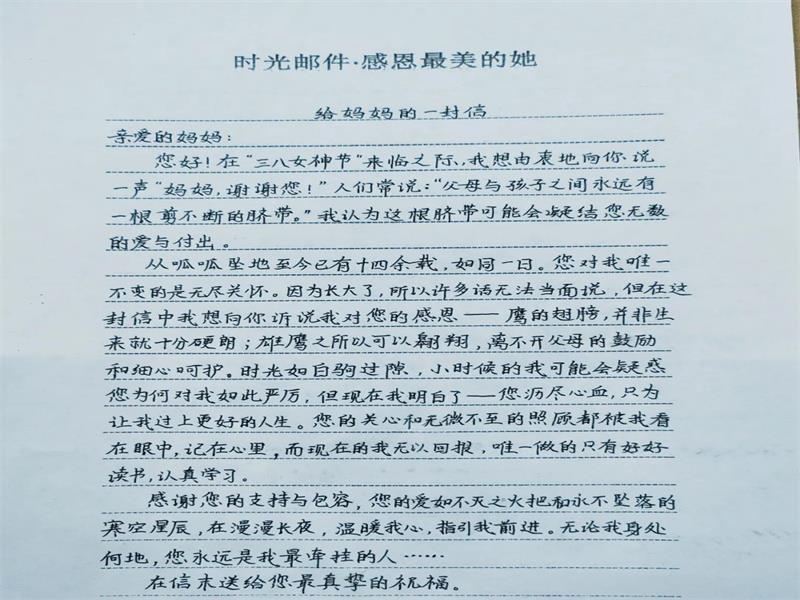 时光邮件·感恩最美的她
给妈妈的一封信
亲爱的妈妈：
您好！在“三八女神节”来临之际、我想由衷地向你说
一声“妈妈，谢谢您！”人们常说：“父母与孩子之间永远有
一根剪不断的脐带。”我认为这根脐带可能会凝结您无数
的爱与付出。
从呱呱坠地至今已有十四余载，如同一日。您对我唯一
不变的是无尽关怀。因为长大了，所以许多话无法当面说，但在这
封信中我想向你诉说我对您的感恩——鹰的翅膀，并非生
来就十分硬朗；雄鹰之所以可以翱翔，离不开父母的鼓励
和细心呵护。时光如白驹过隙，小时候的我可能会疑惑
您为何对我如此严厉，但现在我明白了——您沥尽心血，只为
让我过上更好的人生。您的关心和无微不至的照顾都被我看
在眼中，记在心里，而现在的我无以回报，唯一做的只有好好
读书，认真学习。
感谢您的支持与包容，您的爱如不灭之火把和永不坠落的
寒空星辰，在漫漫长夜，温暖我心，指引我前进。无论我身处
何地，您永远是我最牵挂的人……
在信末送给您最真挚的祝福。